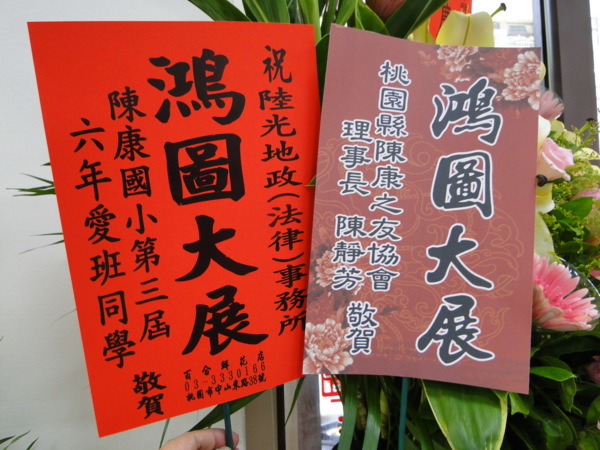 祝陸光地政(法律)事務所
鴻圖大展
陳康國小第三屆
六年愛班同學
敬賀
百合鮮花店
03-3330166
桃園市中山東路38號
鴻圖大展
桃園縣陳康之友協會
理事長 陳靜芳 敬賀